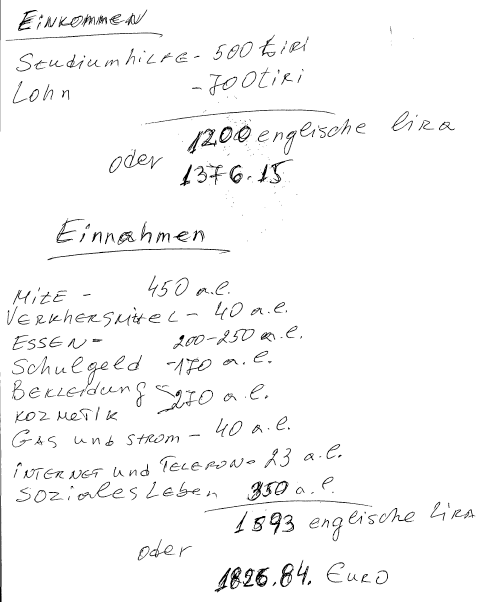 Einkommen
Studiumhilfe - 500 tiri
Lohn - 700 tiri
1200 englische lira
oder 1376.15
Einnahmen
Mite - 450 a.l.
Verkhersmittel - 40 a.l.
Essen - 200-250 a.l.
Schulgeld - 170 a.l.
Bekleidung
Kozmetik 270 a.l.
Gas und Strom - 40 a.l.
Internet und Telefon - 23 a.l.
Soziales Leben 350 a.l.
1593 englische lira
oder
1826.84. Euro